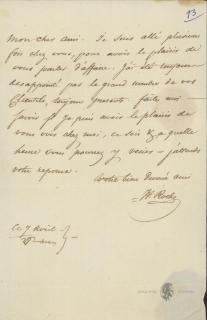 93
Mon cher ami. Je suis allé plusieurs
fois chez vous, pour avoir le plaisir de
vous parler d'affaire. J'ai été toujours
desappointé par le grand nombre de vos
Clientels, toujours presents. Faites moi
savoir si je puis avoir le plaisir de
vous voir chez moi, ce soir & a quelle
heure vous pourrez y venir - j'attends
votre reponse.
Votre bien Devoué ami
Roche
Ce 7 Avril